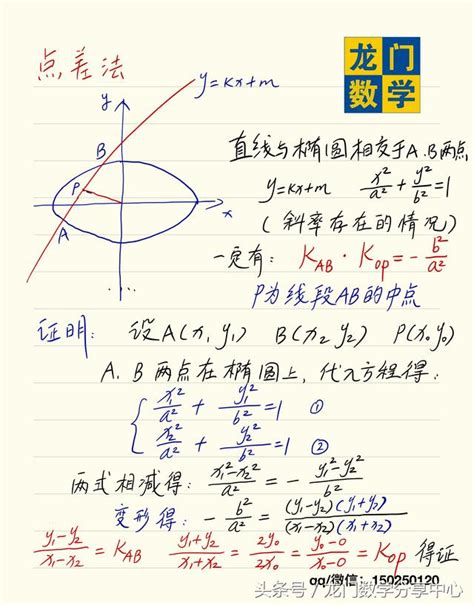 点差法
y=kx+m
龙门
数学
y
B
P
A
x
直线与椭圆相交于A.B两点
y=kx+m x²/a² + y²/b² =1
(斜率存在的情况)
一定有: K_AB · K_OP = - b²/a²
P为线段AB的中点
证明: 设A(x₁ y₁) B(x₂ y₂) P(x₀ y₀)
A、B两点在椭圆上,代入方程得:
x₁²/a² + y₁²/b² =1 ①
x₂²/a² + y₂²/b² =1 ②
两式相减得: (x₁²-x₂²)/a² = - (y₁²-y₂²)/b²
变形得: - b²/a² = (y₁-y₂)(y₁+y₂)/(x₁-x₂)(x₁+x₂)
(y₁-y₂)/(x₁-x₂) = K_AB (y₁+y₂)/(x₁+x₂) = 2y₀/2x₀ = (y₀-0)/(x₀-0) = K_OP 得证
qq/微信: 150250120
头条号 / 龙门数学分享中心